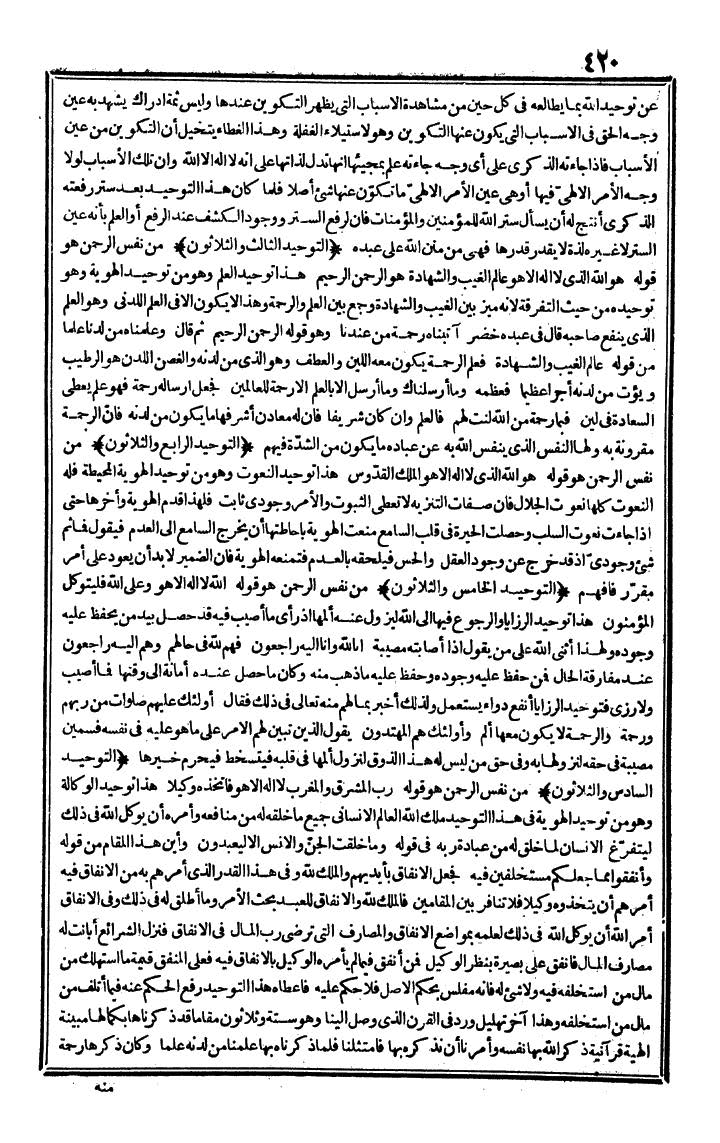 ٤٢٠
عن توحيد الله بما يطالعه فى كل حين من مشاهدة الاسباب التى يظهر التكوين عندها وليس ثمة ادراك يشهد به عين
وجه الحق فى الاسباب التى يكون عنها التكوين وهو لاستيلاء الغفلة وهذا الغطاء يتخيل أن التكوين من عين
الأسباب فاذا جاءته الذكرى على أى وجه جاءته علم بمجيئها انها تدل لذاتها على انه لا اله الا الله وان تلك الأسباب لولا
وجه الأمر الالهىّ فيها أو هى عين الأمر الالهىّ ما تكوّن عنها شئ أصلا فلما كان هذا التوحيد بعد ستر رفعته
الذكرى أنتج له أن يسأل ستر الله للمؤمنين والمؤمنات فان لرفع الستر ووجود الكشف عند الرفع أو العلم بأنه عين
الستر لا غيره لذة لا يقدر قدرها فهى من منن الله على عبده ﴿التوحيد الثالث والثلاثون﴾ من نفس الرحمن هو
قوله هو الله الذى لا اله الا هو عالم الغيب والشهادة هو الرحمن الرحيم هذا توحيد العلم وهو من توحيد الهوية وهو
توحيده من حيث التفرقة لانه ميز بين الغيب والشهادة وجمع بين العلم والرحمة وهذا لا يكون الا فى العلم اللدنى وهو العلم
الذى ينفع صاحبه قال فى عبده خضر آتيناه رحمة من عندنا وهو قوله الرحمن الرحيم ثم قال وعلمناه من لدنا علما
من قوله عالم الغيب والشهادة فعلم الرحمة يكون معه اللين والعطف وهو الذى من لدنه والغصن اللدن هو الرطيب
ويؤت من لدنه أجرا عظيما فعظمه وما أرسلناك وما أرسل الا بالعلم الا رحمة للعالمين فجعل ارساله رحمة فهو علم يعطى
السعادة فى لين فبما رحمة من الله لنت لهم فالعلم وان كان شريفا فان له معادن أشرفها ما يكون من لدنه فانّ الرحمة
مقرونة به ولها النفس الذى ينفس الله به عن عباده ما يكون من الشدّة فيهم ﴿التوحيد الرابع والثلاثون﴾ من
نفس الرحمن هو قوله هو الله الذى لا اله الا هو الملك القدّوس هذا توحيد النعوت وهو من توحيد الهوية المحيطة فله
النعوت كلها نعوت الجلال فان صفات التنزيه لا تعطى الثبوت والأمر وجودى ثابت فلهذا قدم الهوية وأخرها حتى
اذا جاءت نعوت السلب وحصلت الحيرة فى قلب السامع منعت الهوية باحاطتها أن يخرج السامع الى العدم فيقول فما ثم
شئ وجودىّ اذ قد خرج عن وجود العقل والحس فيلحقه بالعدم فتمنعه الهوية فان الضمير لا بد أن يعود على أمر
مقرّر فافهم ﴿التوحيد الخامس والثلاثون﴾ من نفس الرحمن هو قوله الله لا اله الا هو وعلى الله فليتوكل
المؤمنون هذا توحيد الرزايا والرجوع فيها الى الله ليزول عنه ألمها اذ رأى ما أصيب فيه قد حصل بيد من يحفظ عليه
وجوده ولهذا أثنى الله على من يقول اذا أصابته مصيبة انا لله وانا اليه راجعون فهم لله فى حالهم وهم اليه راجعون
عند مفارقة الحال فمن حفظ عليه وجوده وحفظ عليه ما ذهب منه وكان ما حصل عنده أمانة الى وقتها فما أصيب
ولا رزى فتوحيد الرزايا أنفع دواء يستعمل ولذلك أخبر بما لهم منه تعالى فى ذلك فقال أولئك عليهم صلوات من ربهم
ورحمة والرحمة لا يكون معها ألم وأولئك هم المهتدون يقول الذين تبين لهم الامر على ما هو عليه فى نفسه فسمين
مصيبة فى حقه لنزولها به وفى حق من ليس له هذا الذوق لنزول ألمها فى قلبه فيتسخط فيحرم خيرها ﴿التوحيد
السادس والثلاثون﴾ من نفس الرحمن هو قوله رب المشرق والمغرب لا اله الا هو فاتخذه وكيلا هذا توحيد الوكالة
وهو من توحيد الهوية فى هذا التوحيد ملك الله العالم الانسانى جميع ما خلقه له من منافعه وأمره أن يوكل الله فى ذلك
ليتفرّغ الانسان لما خلق له من عبادة ربه فى قوله وما خلقت الجنّ والانس الا ليعبدون وأين هذا المقام من قوله
وأنفقوا مما جعلكم مستخلفين فيه فجعل الانفاق بأيديهم والملك لله وفى هذا القدر الذى أمرهم به من الانفاق فيه
أمرهم أن يتخذوه وكيلا فلا تنافر بين المقامين فالملك لله والانفاق للعبد بحث الأمر وما أطلق له فى ذلك وفى الانفاق
أمر الله أن يوكل الله فى ذلك لعلمه بمواضع الانفاق والمصارف التى ترضى رب المال فى الانفاق فنزل الشرائع أبانت له
مصارف المال فانفق على بصيرة بنظر الوكيل فمن أنفق فيما لم يأمره الوكيل بالانفاق فيه فعلى المنفق قيمة ما استهلك من
مال من استخلفه فيه ولا شئ له فانه مفلس بحكم الاصل فلا حكم عليه فاعطاه هذا التوحيد رفع الحكم عنه فيما أتلف من
مال من استخلفه وهذا آخر تهليل ورد فى القرن الذى وصل الينا وهو ستة وثلاثون مقاما قد ذكرناها بكمالها مبينة
الهية قرآنية ذكر الله بها نفسه وأمرنا أن نذكره بها فامتثلنا فلما ذكرناه بها علمنا من لدنه علما وكان ذكرها رحمة
منه